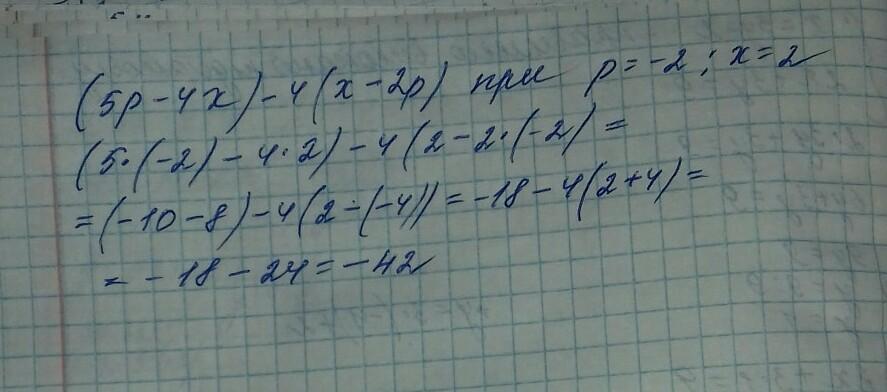 (5p-4x)-4(x-2p) при p=-2; x=2
(5·(-2)-4·2)-4(2-2·(-2)=
=(-10-8)-4(2-(-4))=-18-4(2+4)=
=-18-24=-42